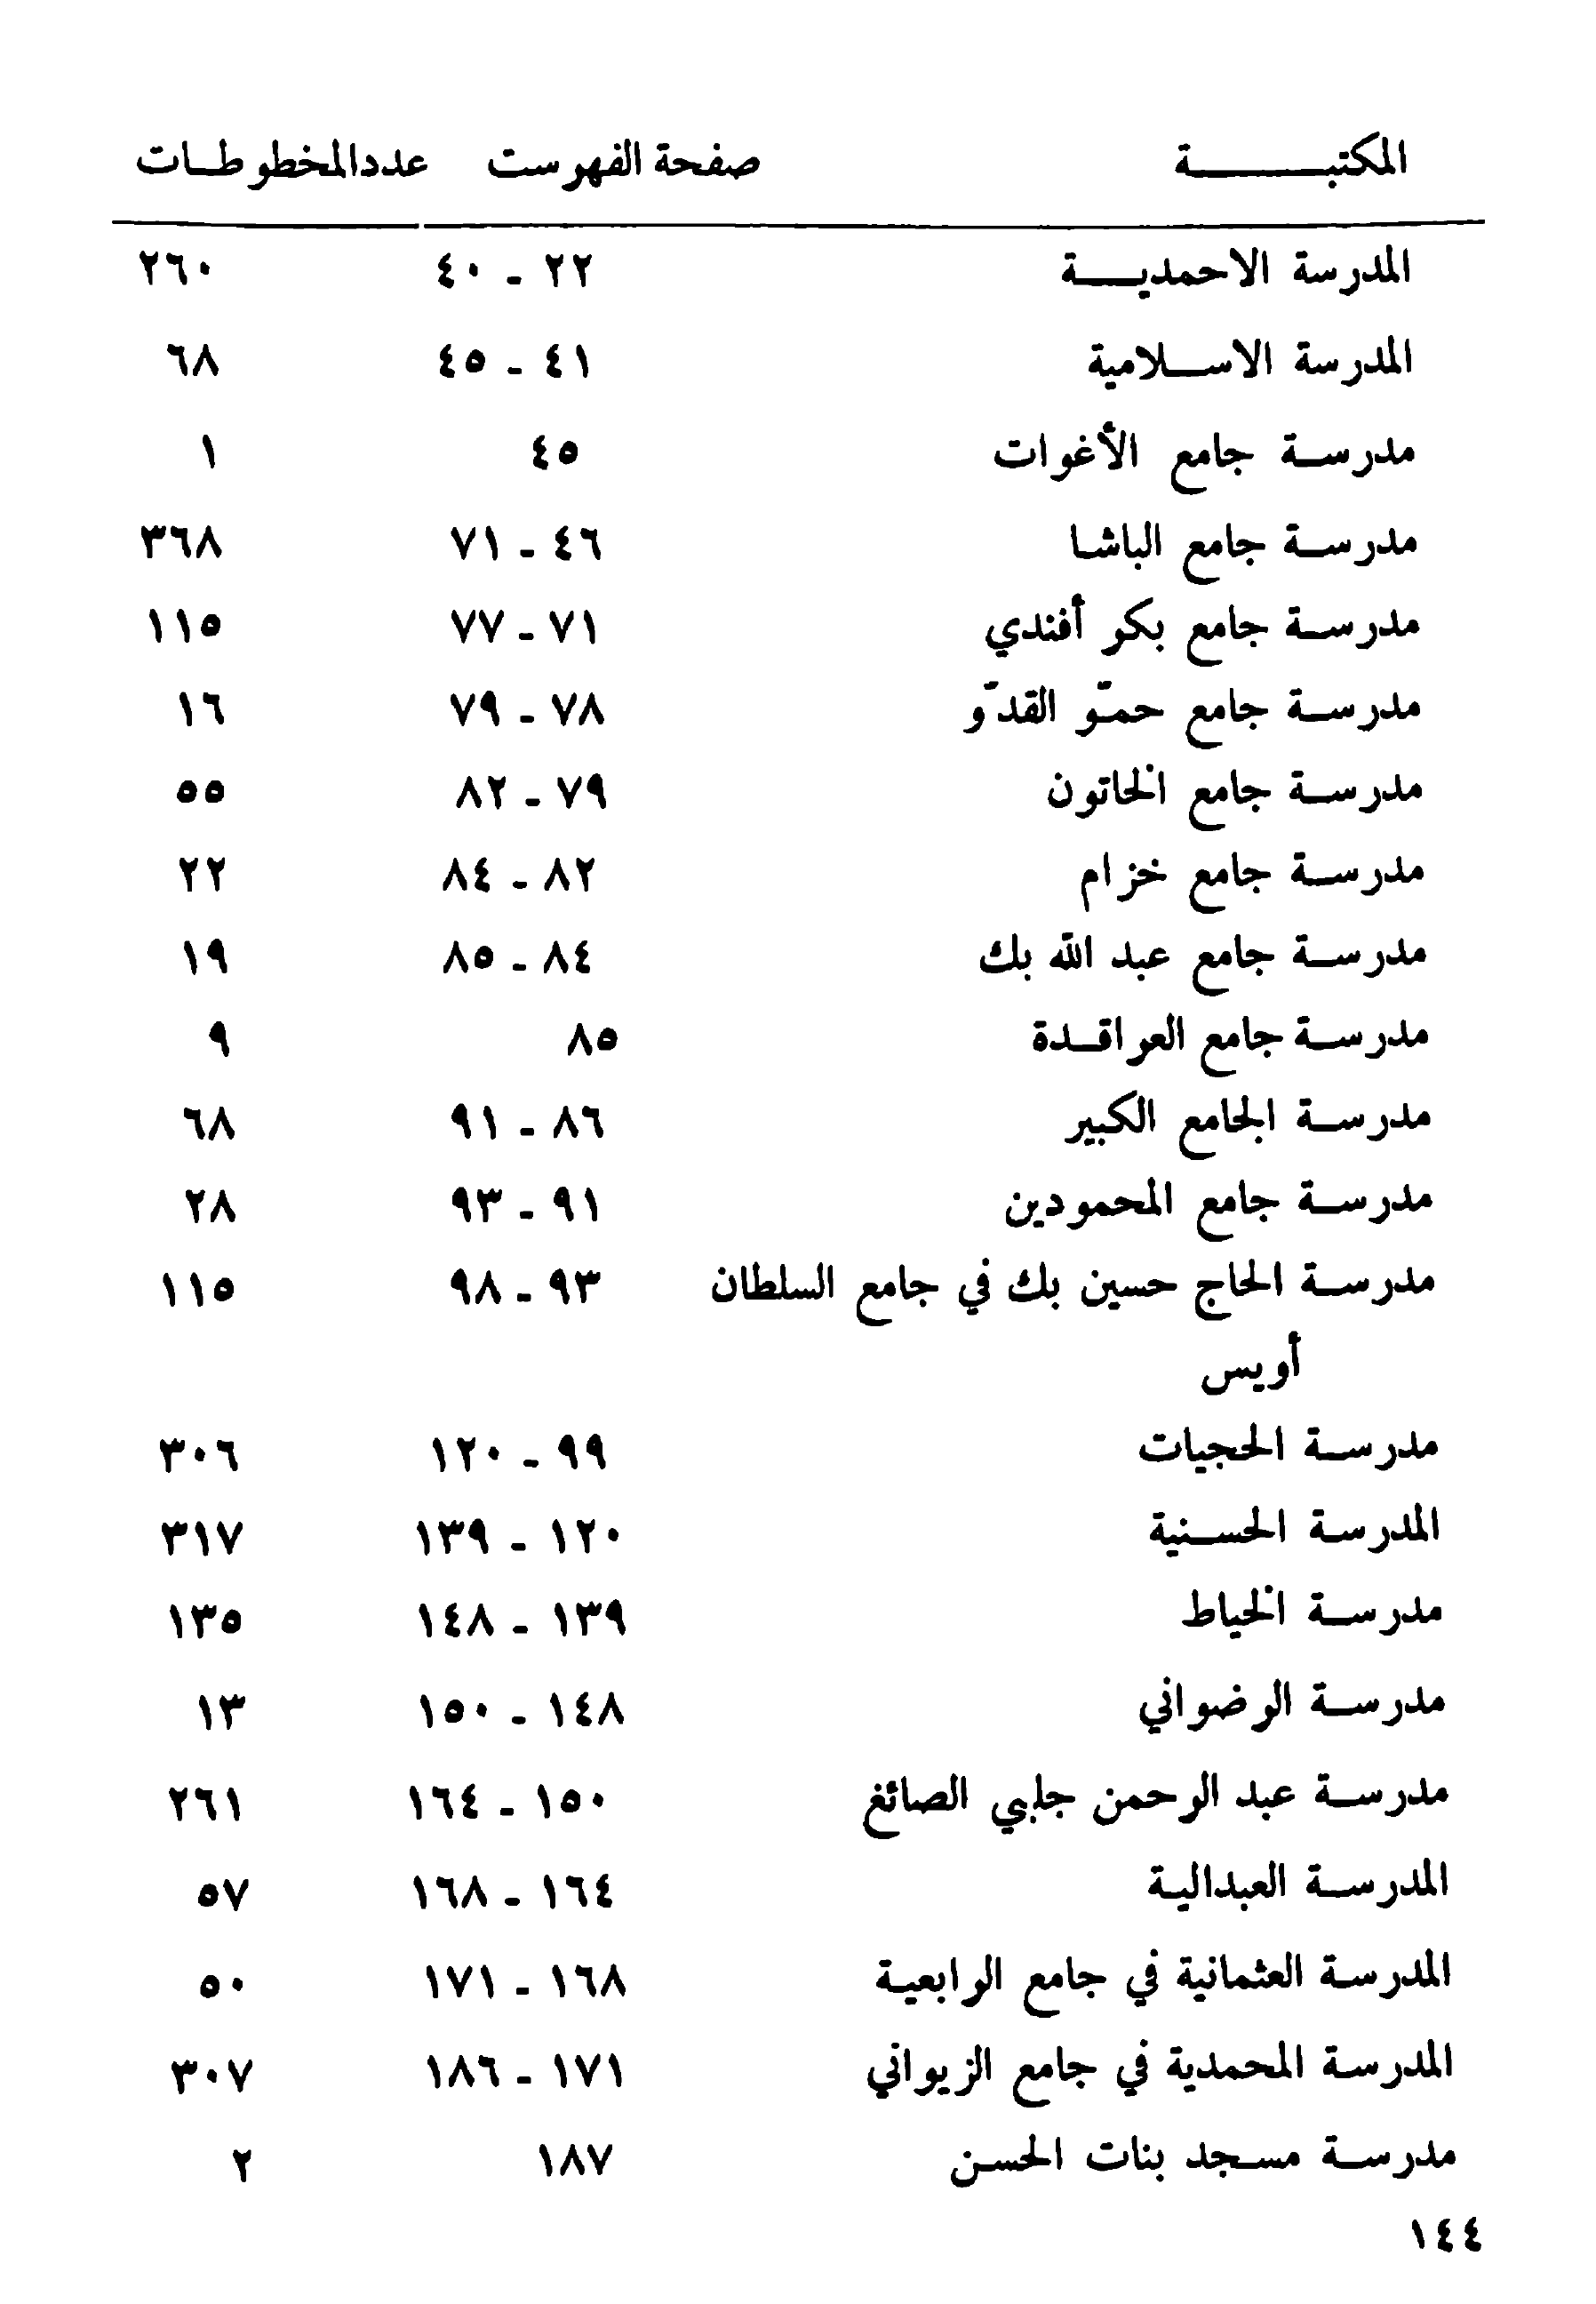 المكتبـــــة صفحة الفهرست عدد المخطوطـات
المدرسة الاحمديــة ٢٢ - ٤٠ ٢٦٠
المدرسة الاســلامية ٤١ - ٤٥ ٦٨
مدرسـة جامع الأغوات ٤٥ ١
مدرسـة جامع الباشـا ٤٦ - ٧١ ٣٦٨
مدرسـة جامع بكر أفندي ٧١ - ٧٧ ١١٥
مدرسـة جامع حمـّو القدّو ٧٨ - ٧٩ ١٦
مدرسـة جامع الخاتون ٧٩ - ٨٢ ٥٥
مدرسـة جامع خزام ٨٢ - ٨٤ ٢٢
مدرسـة جامع عبد الله بك ٨٤ - ٨٥ ١٩
مدرسـة جامع العراقـدة ٨٥ ٩
مدرسـة الجامع الكبير ٨٦ - ٩١ ٦٨
مدرسـة جامع المحمودين ٩١ - ٩٣ ٢٨
مدرسـة الحاج حسين بك في جامع السلطان ٩٣ - ٩٨ ١١٥
أويس
مدرسـة الحجيات ٩٩ - ١٢٠ ٣٠٦
المدرسـة الحسـنية ١٢٠ - ١٣٩ ٣١٧
مدرسـة الخياط ١٣٩ - ١٤٨ ١٣٥
مدرسـة الرضواني ١٤٨ - ١٥٠ ١٣
مدرسـة عبد الرحمن جلبي الصائغ ١٥٠ - ١٦٤ ٢٦١
المدرسـة العبدالية ١٦٤ - ١٦٨ ٥٧
المدرسـة العثمانية في جامع الرابعية ١٦٨ - ١٧١ ٥٠
المدرسـة المحمدية في جامع الزيواني ١٧١ - ١٨٦ ٣٠٧
مدرسـة مسـجد بنات الحسـن ١٨٧ ٢
١٤٤